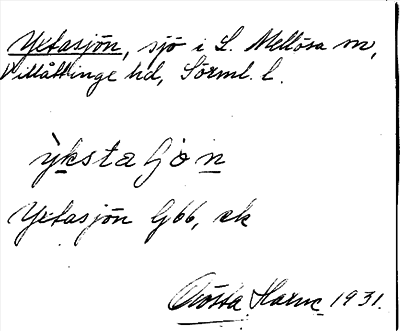 Yxtasjön, sjö i L. Mellösa sn,
Villåttinge hd, Sörml. l.
ỳkstaʃön
Yxtasjön G66, ek
Gösta 1931.